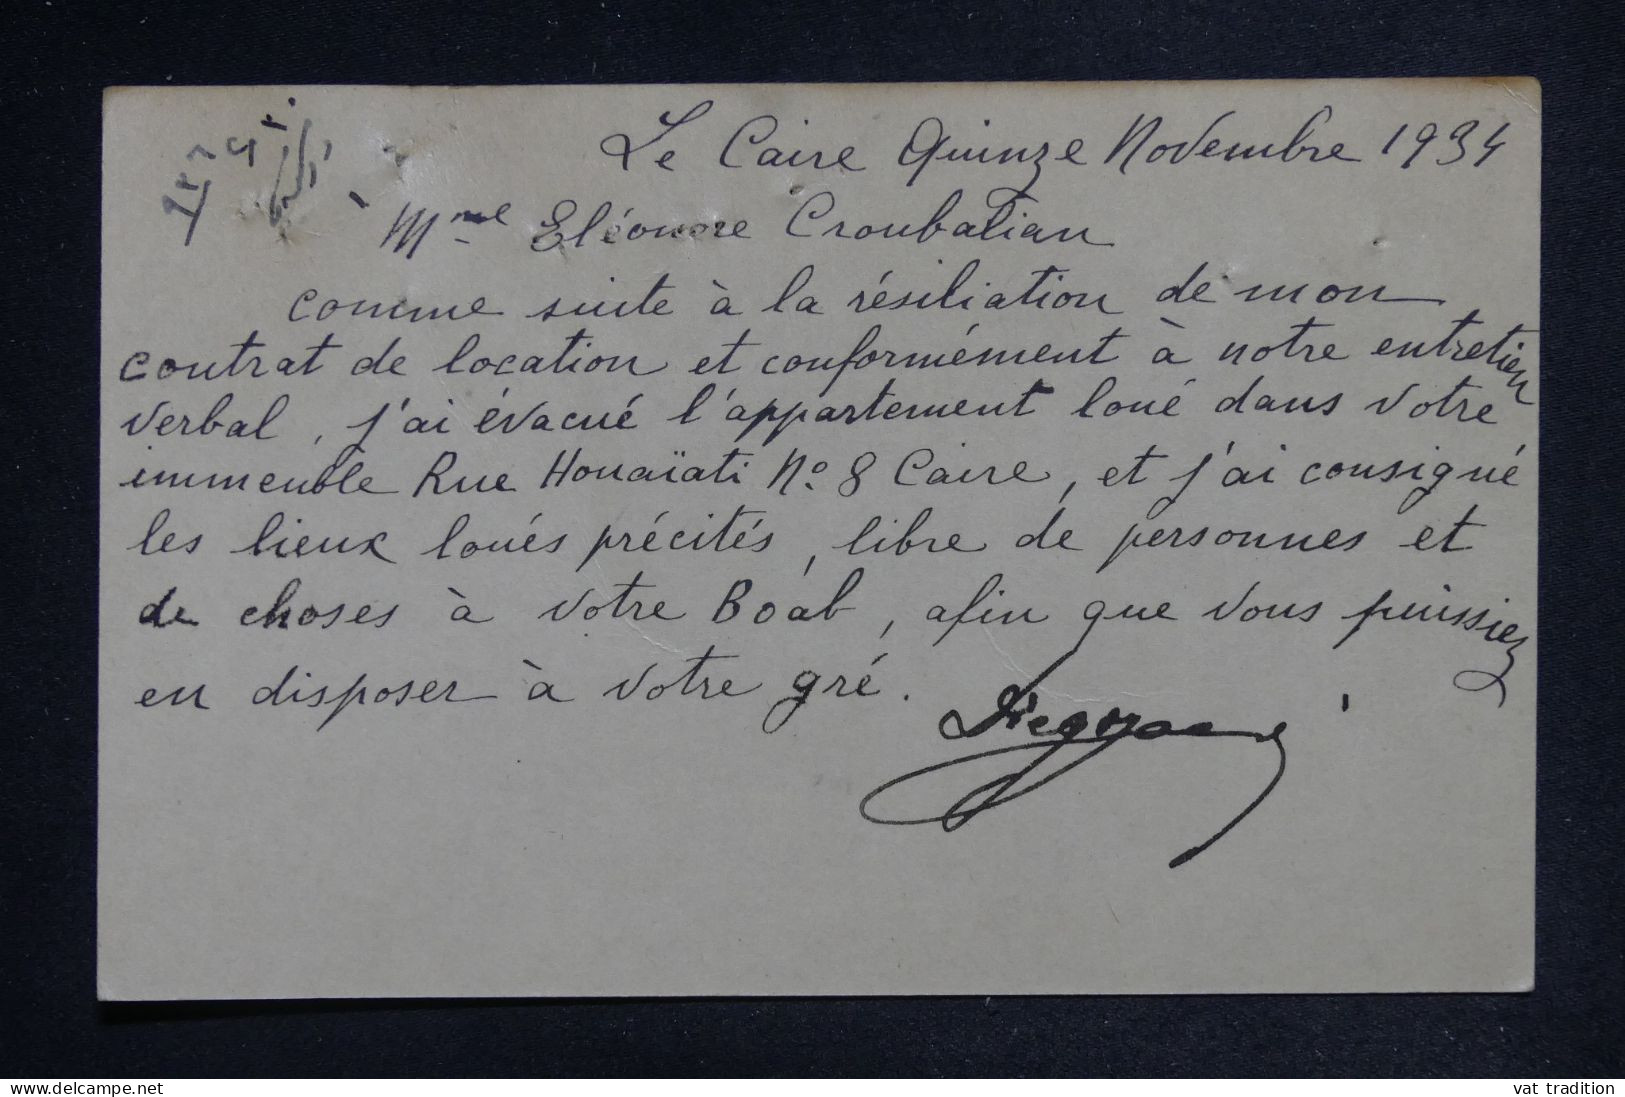 Le Caire Quinze Novembre 1934
Mme Eléonore Croubalian
comme suite à la résiliation de mon
contrat de location et conformément à notre entretien
verbal, j'ai évacué l'appartement loué dans votre
immeuble Rue Houaïati No. 8 Caire, et j'ai consigné
les lieux loués précités, libre de personnes et
de choses à votre Boab, afin que vous puissiez
en disposer à votre gré.
www.delcampe.net
vat tradition